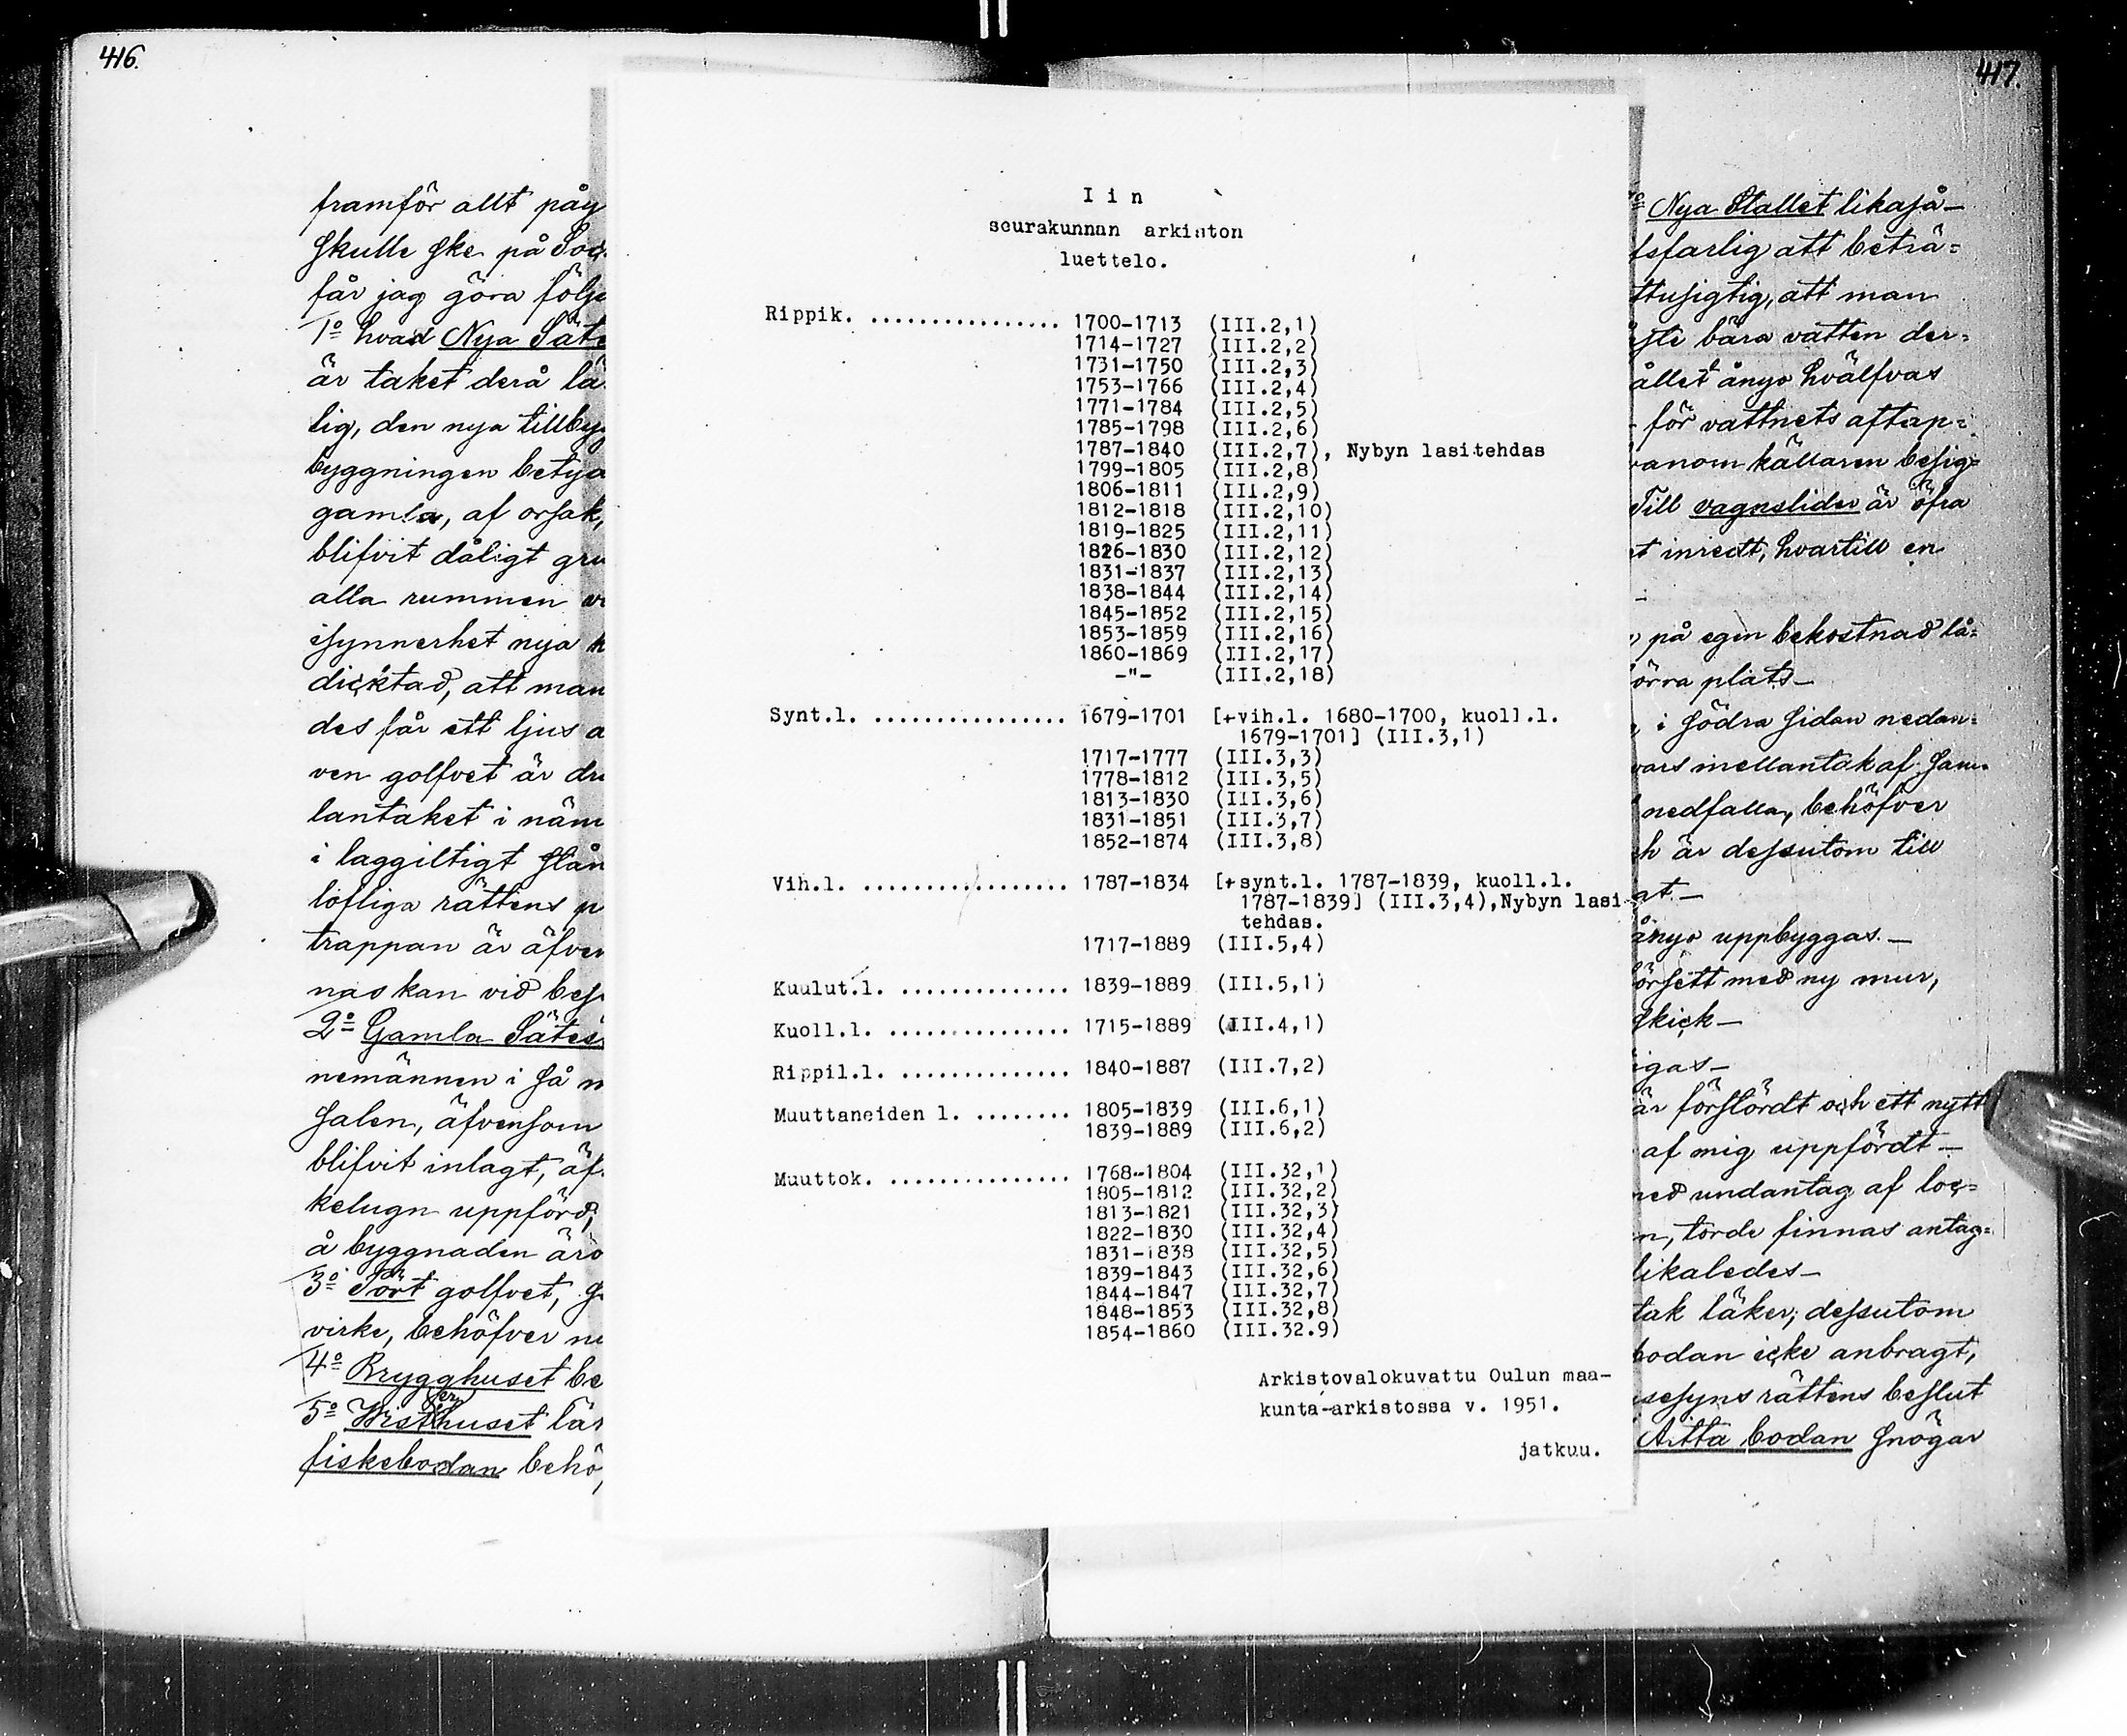 416.
framför allt påy
skulle ske på Soc
får jag göra följ
1º hvad Nya Säte
är taket derå lä
lig, den nya tillby
byggningen betyd
gamla, af orsak,
blifvit dåligt gru
alla rummen
isynnerhet nya
dicktad, att man
des får ett ljus
ven golfvet är
lantaket i näm
i laggiltigt stån
lofliga rättens
trappan är äfven
nas kan vid besi
2º Gamla Sätes
nemännen i så
salen, äfvensom
blifvit inlagt, äf
kelugn uppförd,
å byggnaden äro
3º golfvet,
virke, behöfver
4º Brygghuset be
5º Wisthuset lär
fiskebodan behö
I i n
seurakunnan arkiston
luettelo.
Rippik. ................ 1700-1713 (III.2,1)
1714-1727 (III.2,2)
1731-1750 (III.2,3)
1753-1766 (III.2,4)
1771-1784 (III.2,5)
1785-1798 (III.2,6)
1787-1840 (III.2,7), Nybyn lasitehdas
1799-1805 (III.2,8)
1806-1811 (III.2,9)
1812-1818 (III.2,10)
1819-1825 (III.2,11)
1826-1830 (III.2,12)
1831-1837 (III.2,13)
1838-1844 (III.2,14)
1845-1852 (III.2,15)
1853-1859 (III.2,16)
1860-1869 (III.2,17)
-"- (III.2,18)
Synt.l. ................ 1679-1701 [+vih.l. 1680-1700, kuoll.l.
1679-1701] (III.3,1)
1717-1777 (III.3,3)
1778-1812 (III.3,5)
1813-1830 (III.3,6)
1831-1851 (III.3,7)
1852-1874 (III.3,8)
Vih.l. ................. 1787-1834 [+synt.l. 1787-1839, kuoll.l.
1787-1839] (III.3,4),Nybyn lasi-
tehdas.
1717-1889 (III.5,4)
Kuulut.l. .............. 1839-1889 (III.5,1)
Kuoll.l. ............... 1715-1889 (III.4,1)
Rippil.l. .............. 1840-1887 (III.7,2)
Muuttaneiden l. ........ 1805-1839 (III.6,1)
1839-1889 (III.6,2)
Muuttok. ............... 1768-1804 (III.32,1)
1805-1812 (III.32,2)
1813-1821 (III.32,3)
1822-1830 (III.32,4)
1831-1838 (III.32,5)
1839-1843 (III.32,6)
1844-1847 (III.32,7)
1848-1853 (III.32,8)
1854-1860 (III.32.9)
Arkistovalokuvattu Oulun maa-
kunta-arkistossa v. 1951.
jatkuu.
417.
Nya Stallet likaså—
tsfarlig att beträ=
ttusigtig, att man
bära vatten der=
ållet ånyo hvälfvas
för vattnets aftap=
källaren besig=
Till vagnslider är öfra
inredt, hvartill en
på egen bekostnad lå=
örra plats—
i södra sidan nedan=
vars mellantak af sam=
nedfalla, behöfver
h är dessutom till
at.—
ånyo uppbyggas.—
örsett med ny mur,
skick—
igas—
är förstördt och ett nytt
af mig uppfördt—
ned undantag af loc=
n, torde finnas antag=
likaledes—
tak läker, dessutom
bodan icke anbragt,
sesyns rättens beslut
Aitta bodan snögar